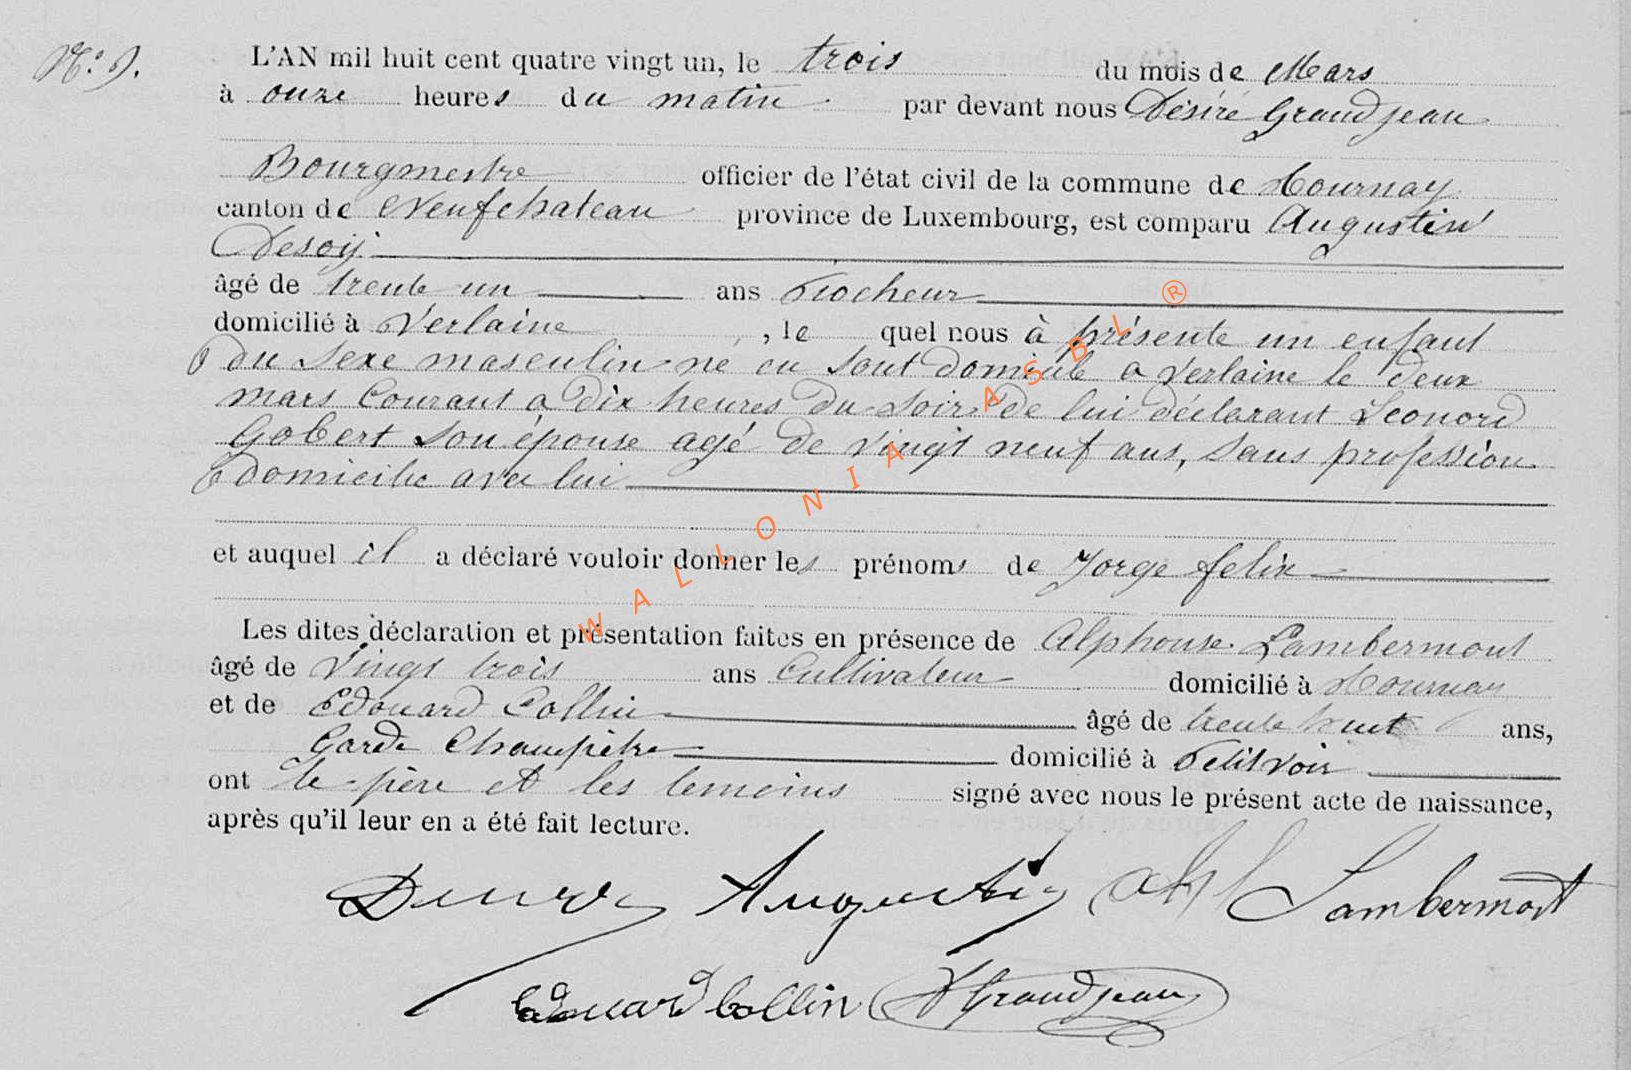 N.º 9.
L'AN mil huit cent quatre vingt un, le trois du mois de Mars
à onze heures du matin par devant nous Désiré Grandjean
Bourgmestre officier de l'état civil de la commune de Tournay
canton de Neufchateau province de Luxembourg, est comparu Augustin
Desoÿ
âgé de trente un ans Piocheur
domicilié à Verlaine, le quel nous à présente un enfant
du sexe masculin né en sont domicile a Verlaine le deux
mars Courant a dix heures du soir de lui déclarant Leonord
Gobert son épouse agé de vingt neuf ans, sans profession
domicilie avec lui
et auquel il a déclaré vouloir donner les prénoms de Jorge felix
Les dites déclaration et présentation faites en présence de Alphonse Lambermont
âgé de Vingt trois ans Cultivateur domicilié à Tournay
et de Edouard Collin âgé de trente huit ans,
Garde Champêtre domicilié à Petitvoir
ont le père et les temoins signé avec nous le présent acte de naissance,
après qu'il leur en a été fait lecture.
Augustin Lambermont
Edouard Collin DGrandjean
WALLONIA ASBL ®